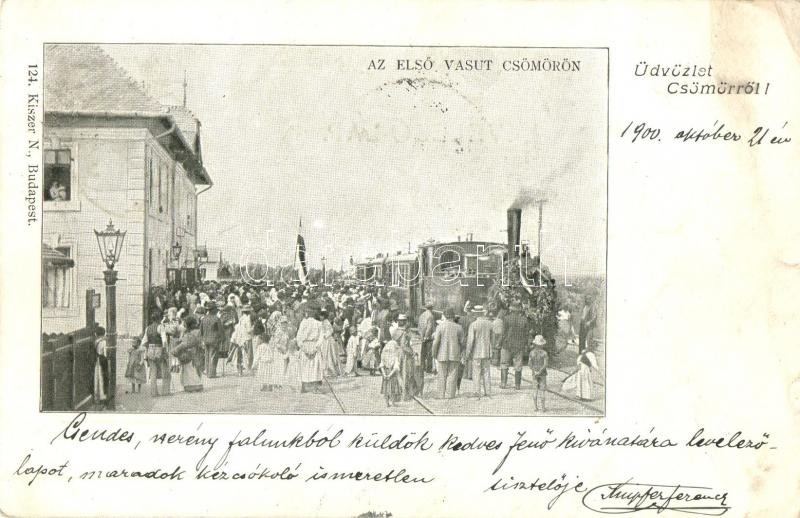 AZ ELSŐ VASUT CSÖMÖRÖN
Üdvözlet
Csömörről!
1900. október 21 én
124. Kiszer N., Budapest.
Csendes, szerény falunkból küldök kedves Jenő kivánatára levelező-
lapot, maradok kézcsókoló ismeretlen
tisztelője
Ferencz